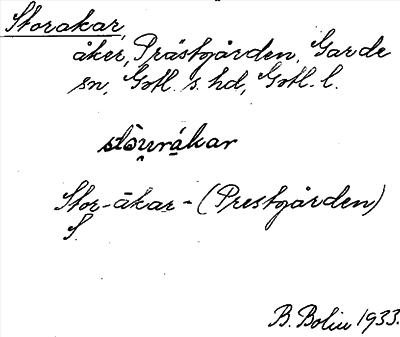 Storakar,
åker, Prästgården, Garde
sn, Gotl. s. hd, Gotl. l.
stòu̯rákar
Stor-åkar - (Prestgården)
S.
B. Bolin 1933.